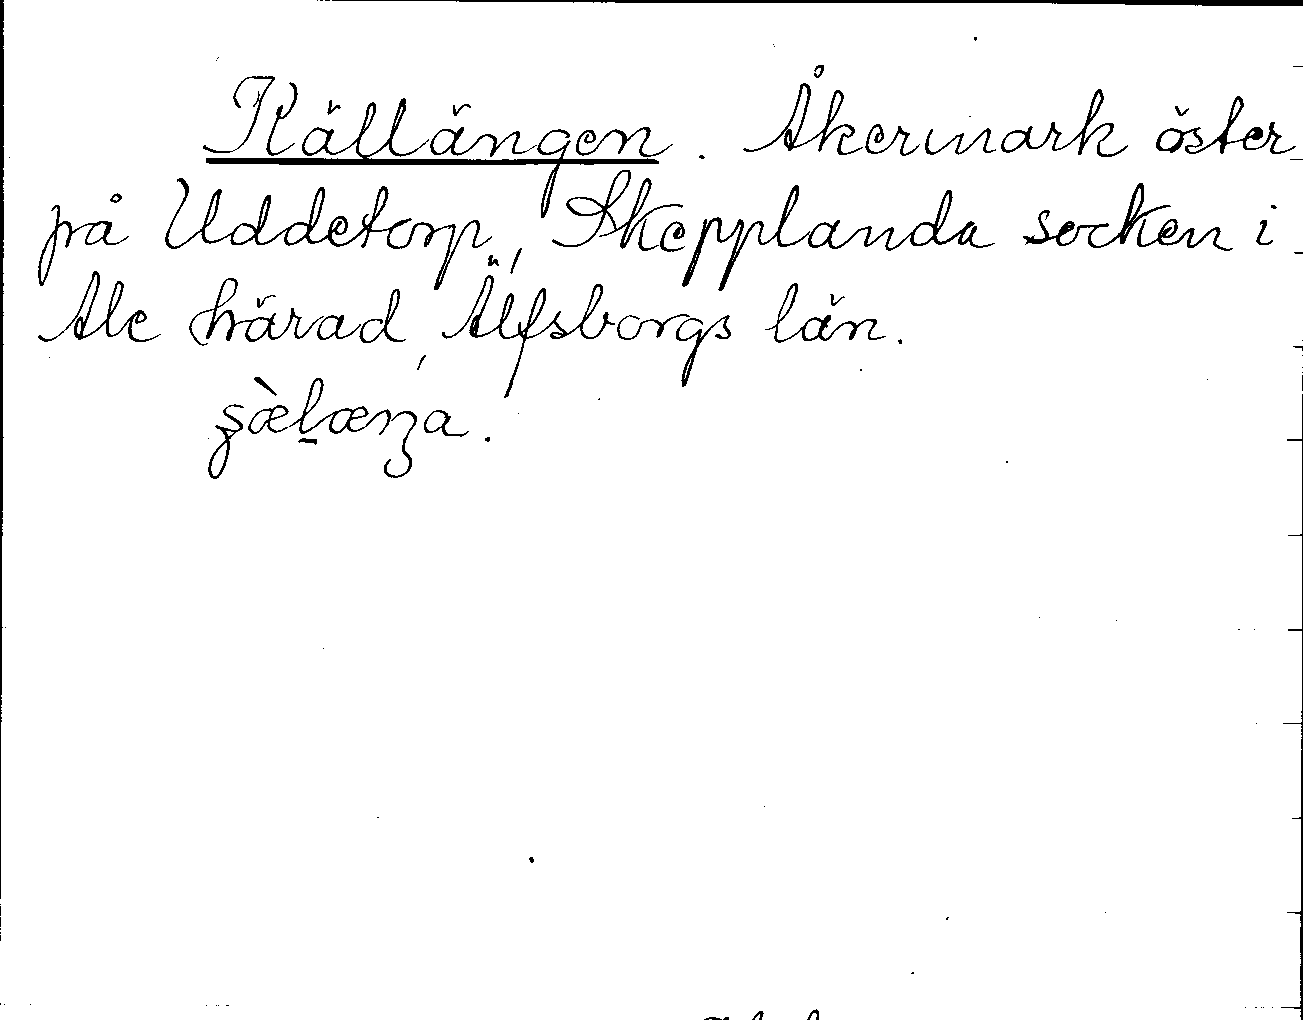 Källängen. Åkermark öster
på Uddetorp, Skepplanda socken i
Ale härad, Älfsborgs län.